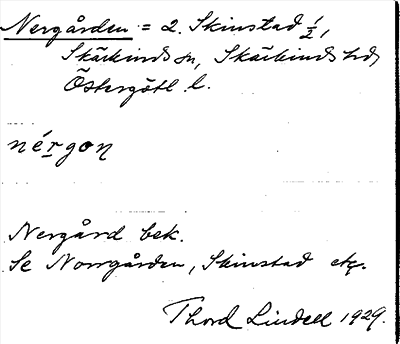 Nergården = 2. Skinstad 1/2,
Skärkinds sn, Skärkinds hd,
Östergötl. l.
nérgon
Nergård bek.
Se Norrgården, Skinstad etc.
Thord Lindell 1929.